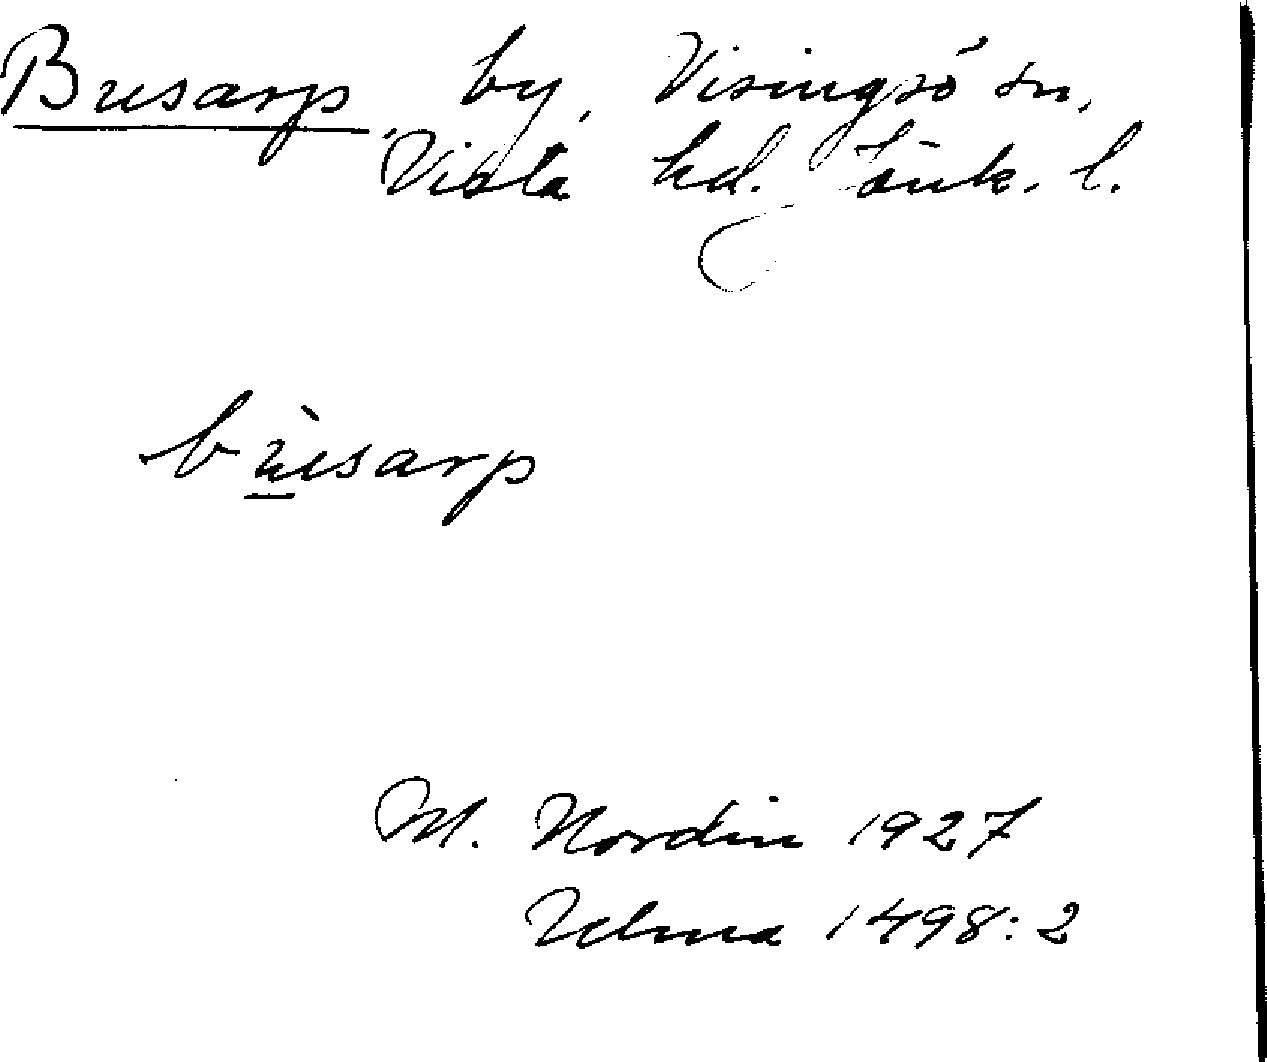 Busarp by, Visingsö sn,
Vista hd. Jönk. l.
bùsarp
M. Nordin 1927
Ulma 1498:2